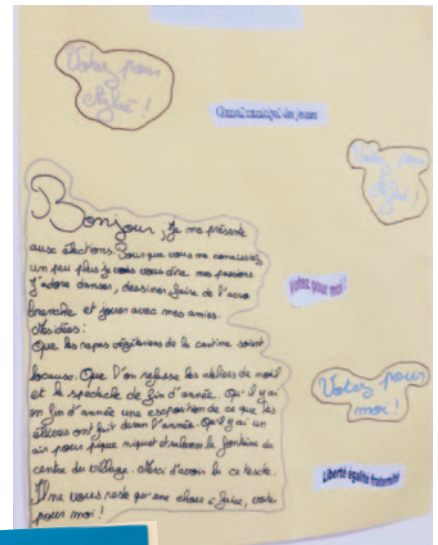 Votez pour
!
Conseil municipal des jeunes
Votez pour
!
Bonjour, je me présente
aux élections. Pour que vous me connaissiez
un peu plus je vais vous dire mes passions
J'adore danser, dessiner, faire de l'acro
branche et jouer avec mes amies.
Mes idées :
Que les repas végétariens de la cantine soient
locaux. Que l'on refasse les ateliers de noël
et le spectacle de fin d'année. Qu'il y ai
en fin d'année une exposition de ce que les
élèves ont fait durant l'année. Qu'il y ai un
air pour pique niquer et rallumer la fontaine du
centre du village. Merci d'avoir lu ce texte.
Il ne vous reste qu'une chose à faire, voter
pour moi !
Votez pour moi !
Votez pour
moi !
Liberté égalité fraternité